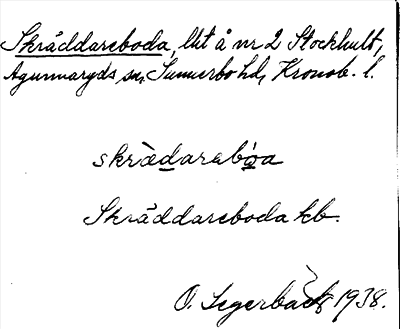 Skräddareboda, lht å nr 2 Stockhult,
Agunnaryds sn, Sunnerbo hd, Kronob. l.
skrädarabóa
Skräddareboda kb.
O. Segerbäck 1938.